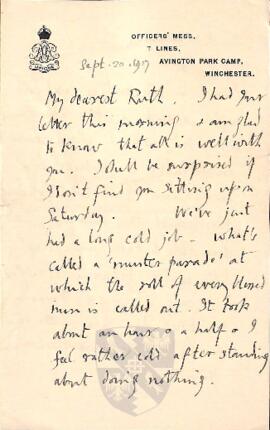 OFFICERS' MESS,
7 LINES,
AVINGTON PARK CAMP,
WINCHESTER.
Sept. 20. 1917
My dearest Ruth. I had your
letter this morning & am glad
to know that all is well with
you. I shall be surprised if
I don't find you sitting up on
Saturday. We've just
had a long cold job - what's
called a 'muster parade' at
which the roll of every blessed
man is called out. It took
about an hour & a half & I
feel rather cold after standing
about doing nothing.